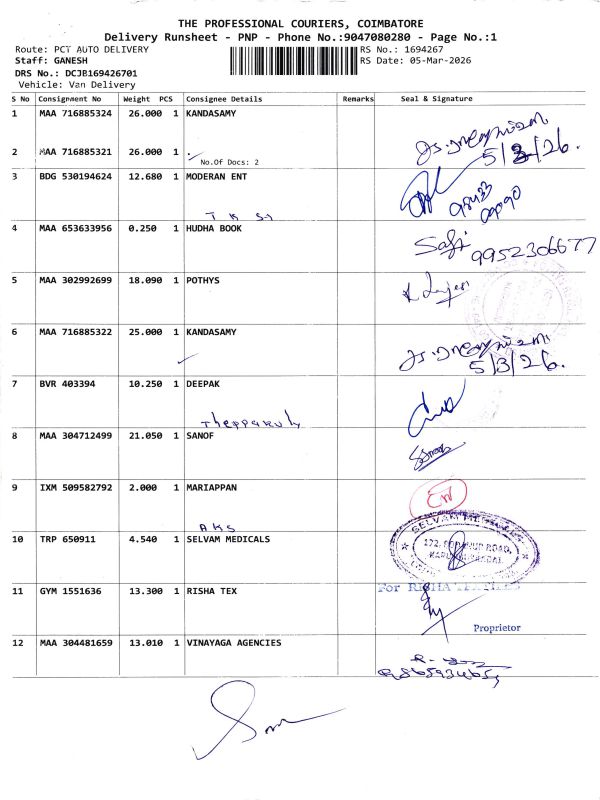 THE PROFESSIONAL COURIERS, COIMBATORE
Delivery Runsheet - PNP - Phone No.:9047080280 - Page No.:1
Route: PCT AUTO DELIVERY
RS No.: 1694267
Staff: GANESH
RS Date: 05-Mar-2026
DRS No.: DCJB169426701
Vehicle: Van Delivery
S No Consignment No Weight PCS Consignee Details Remarks Seal & Signature
1 MAA 716885324 26.000 1 KANDASAMY
2 MAA 716885321 26.000 1
No.Of Docs: 2
5/3/26.
3 BDG 530194624 12.680 1 MODERAN ENT
4 MAA 653633956 0.250 1 HUDHA BOOK
Safi 9952306677
5 MAA 302992699 18.090 1 POTHYS
6 MAA 716885322 25.000 1 KANDASAMY
5/3/26.
7 BVR 403394 10.250 1 DEEPAK
8 MAA 304712499 21.050 1 SANOF
9 IXM 509582792 2.000 1 MARIAPPAN
AKS
10 TRP 650911 4.540 1 SELVAM MEDICALS
SELVAM MEDICALS
11 GYM 1551636 13.300 1 RISHA TEX
For RISHA
Proprietor
12 MAA 304481659 13.010 1 VINAYAGA AGENCIES